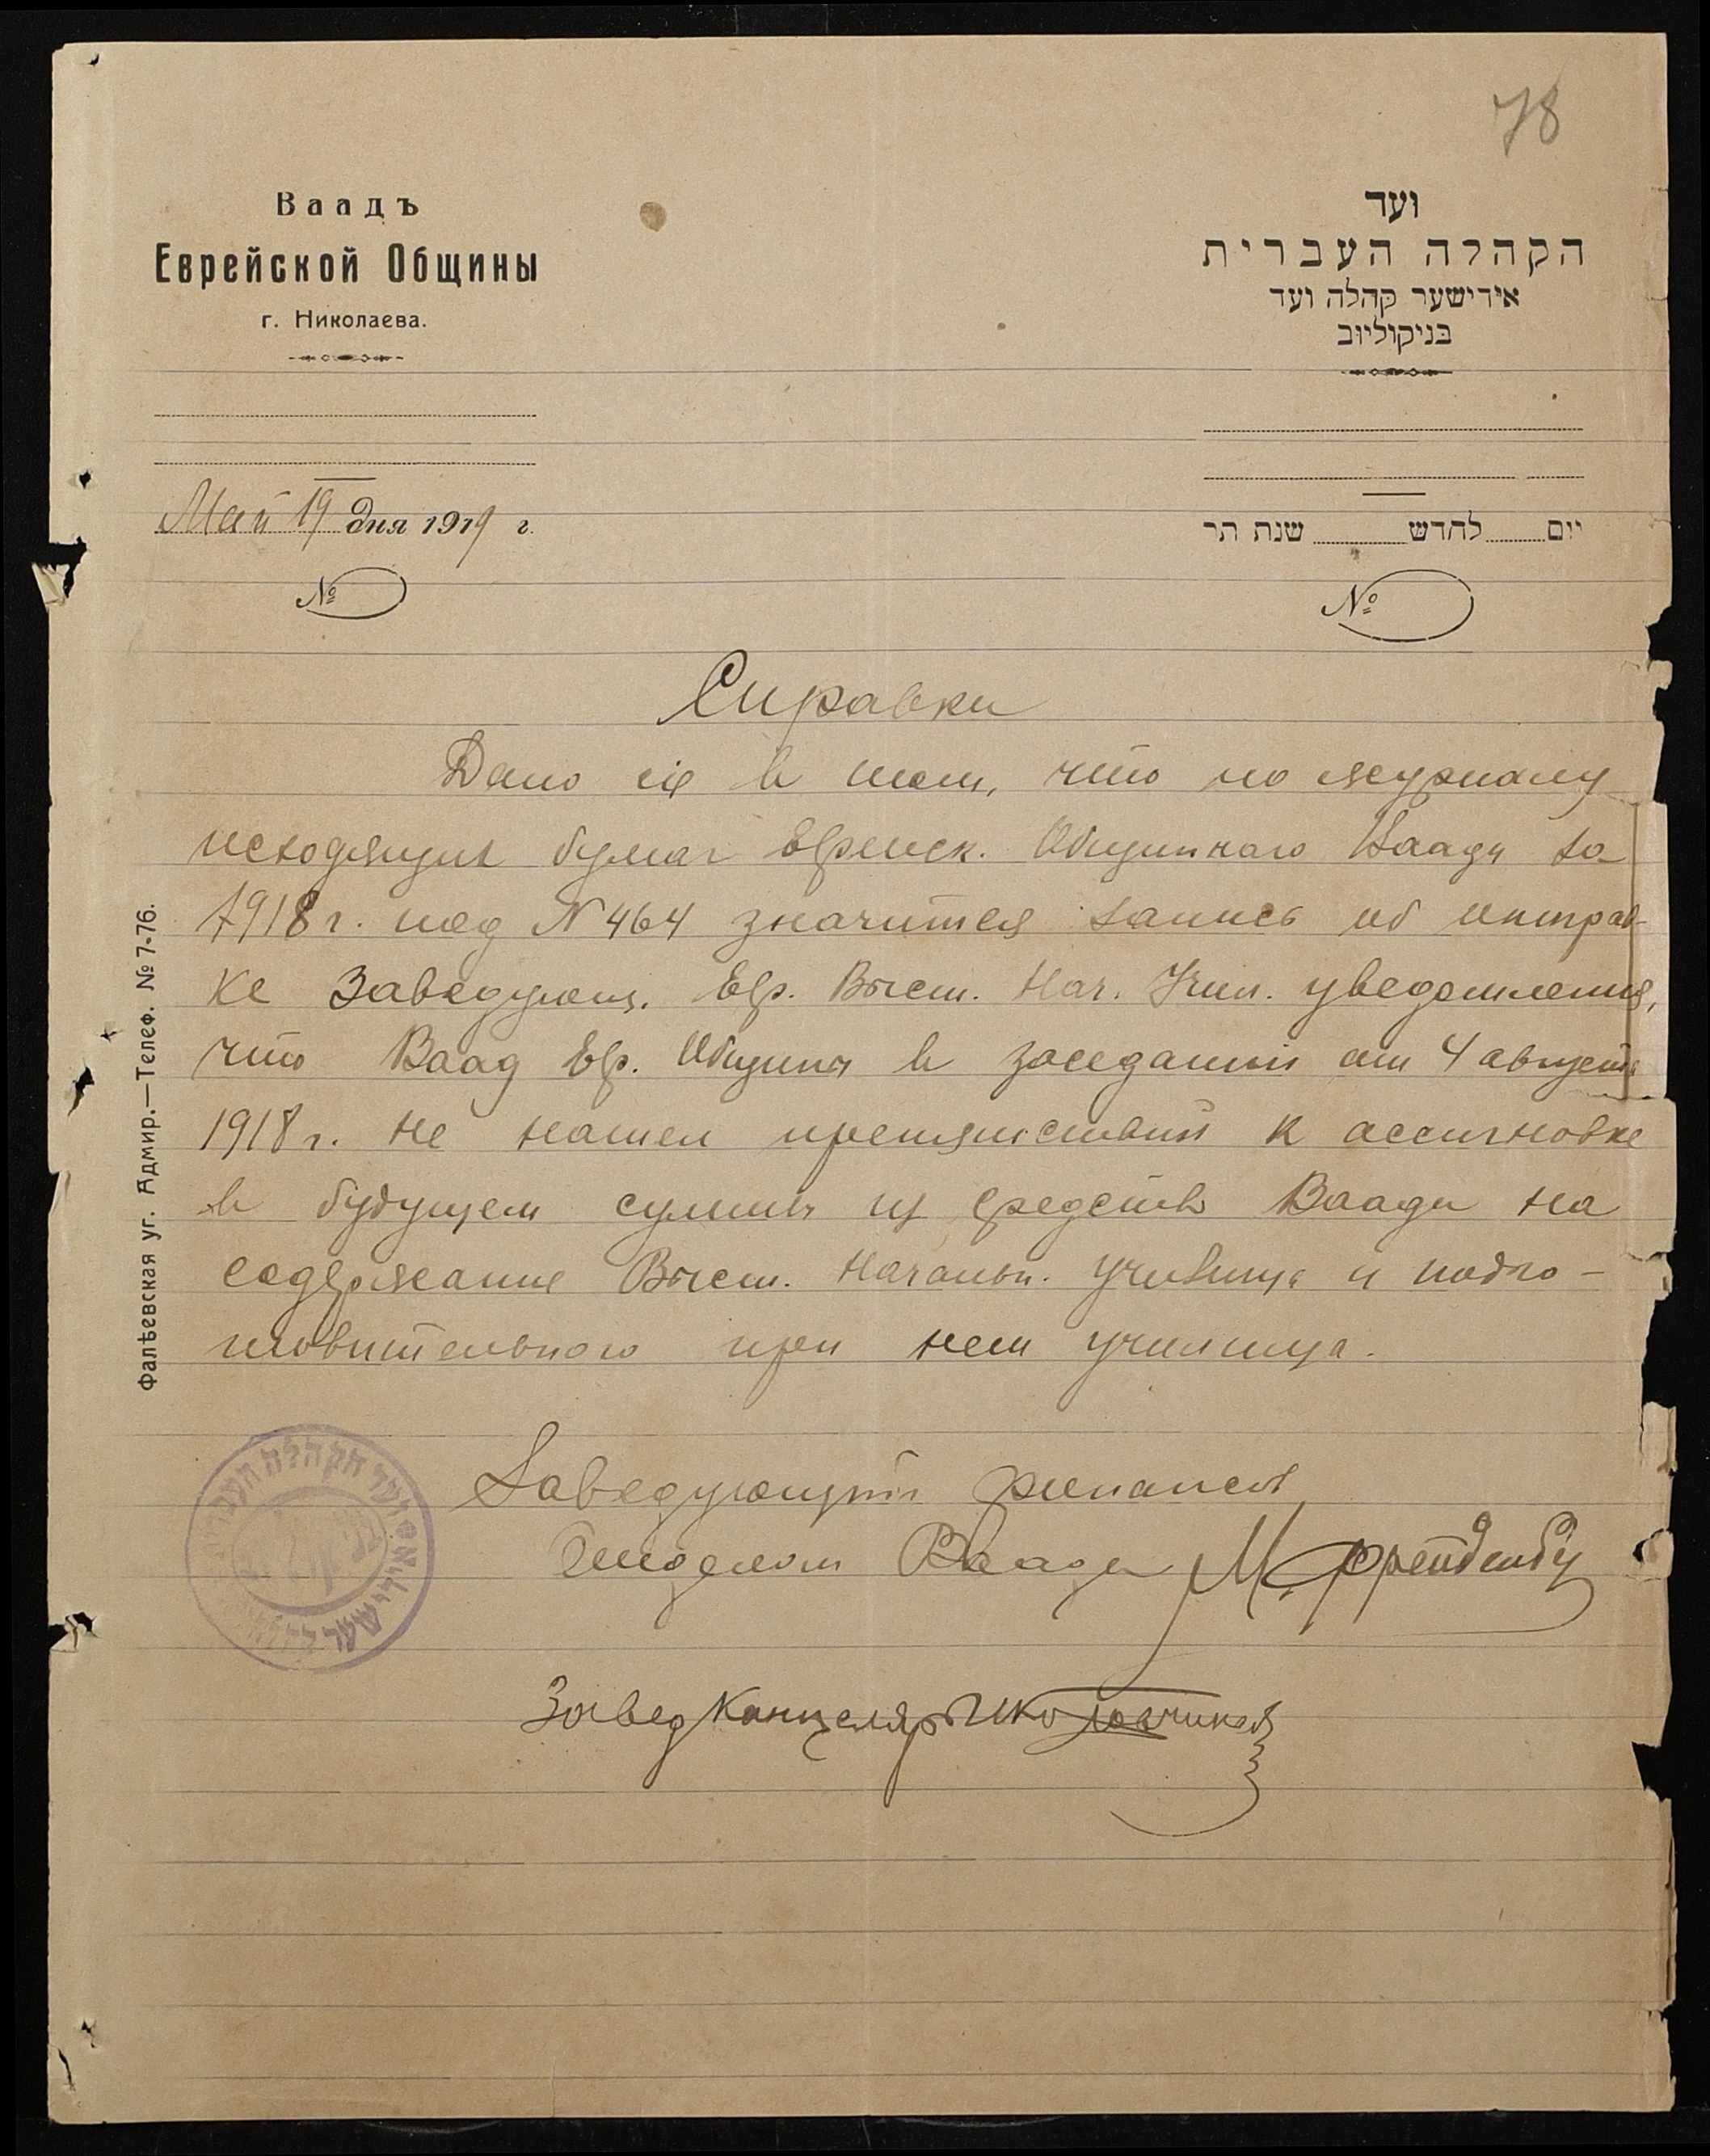 78
Ваадъ
Еврейской Общины
г. Николаева.
ועד
הקהלה העברית
אידישער קהלה ועד
בניקולייוב
Май 19 дня 1919 г.
יום לחדש שנת תר
№
№
Справка
Дано сіе в том, что по журналу
исходящих бумаг Еврейск. Общинного Ваада за
1918 г. под N 464 значится запись об отправ-
ке Заведующ. Евр. Высш. Нач. Учил. уведомления,
что Ваад Евр. Общины в заседании от 4 августа
1918 г. не нашел препятствий к ассигновке
в будущем суммы из средств Ваада на
содержание Высш. Начальн. училища и подго-
товительного при нем училища.
Заведующий финансов.
Отделом Ваада М.
Завед Канцеляр
Фалѣевская уг. Адмир.—Телеф. № 7-76.
ועד הקהלה העברית